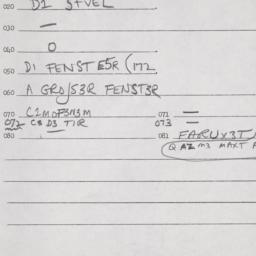 020 D1 STVEL
030 —
040 O
050 D1 FENSTE5R (172
060 A GRO/S3R FENST3R
070 C1MOF3N3M 071 =
072 C8 D3 T1R 073 =
080 — 081 FARUX3T
Q AZ M3 MAXT